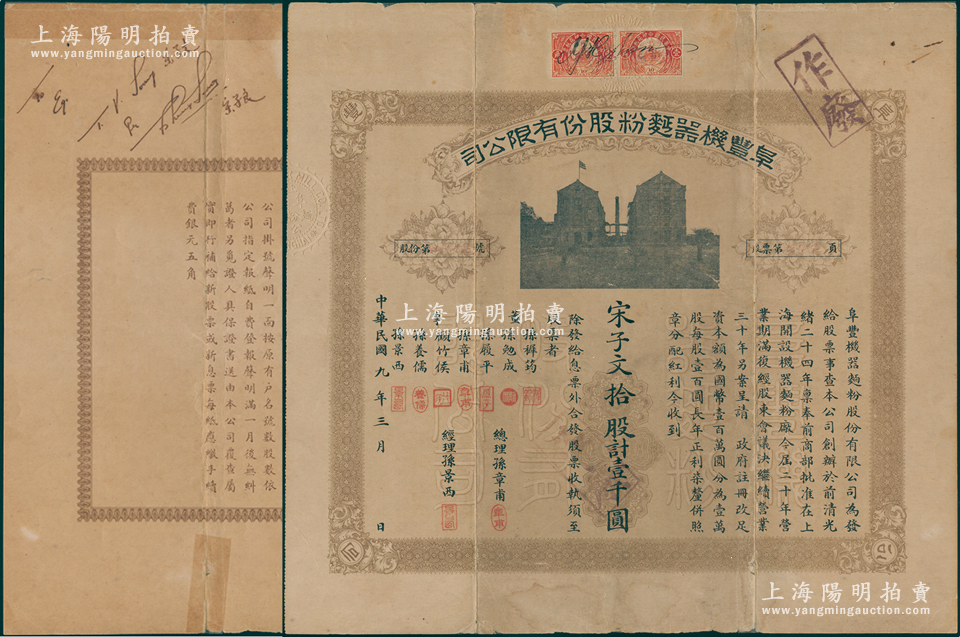 上海陽明拍賣
www.yangmingauction.com
T. V. Soong
宋子良
公司掛號聲明一面按原有戶名號數股數依
公司指定報紙自費登報聲明滿一月後無糾
葛者另覓證人具保證書送由本公司覆查屬
實即行補給新股票或新息票每紙應繳手續
費銀元五角
作廢
阜豐機器麵粉股份有限公司
股票第 頁
股份第 號
阜豐機器麵粉股份有限公司為發
給股票事查本公司創辦於前清光
緒二十四年稟奉前商部批准在上
海開設機器麵粉廠今屆二十年營
業期滿復經股東會議決繼續營業
三十年另案呈請 政府註冊改足
資本額為國幣壹百萬圓分為壹萬
股每股壹百圓長年正利柒釐併照
章分配紅利今收到
宋子文拾股計壹千圓
除發給息票外合發股票收執須至
股票者
總理孫章甫
經理孫景西
孫栁筠
董孫勉成
孫履平
孫章甫
顧竹侯
孫養儒
孫景西
中華民國九年三月 日
阜
豐
公
司
上海陽明拍賣
www.yangmingauction.com
上海陽明拍賣
www.yangmingauction.com
上海陽明拍賣
www.yangmingauction.com